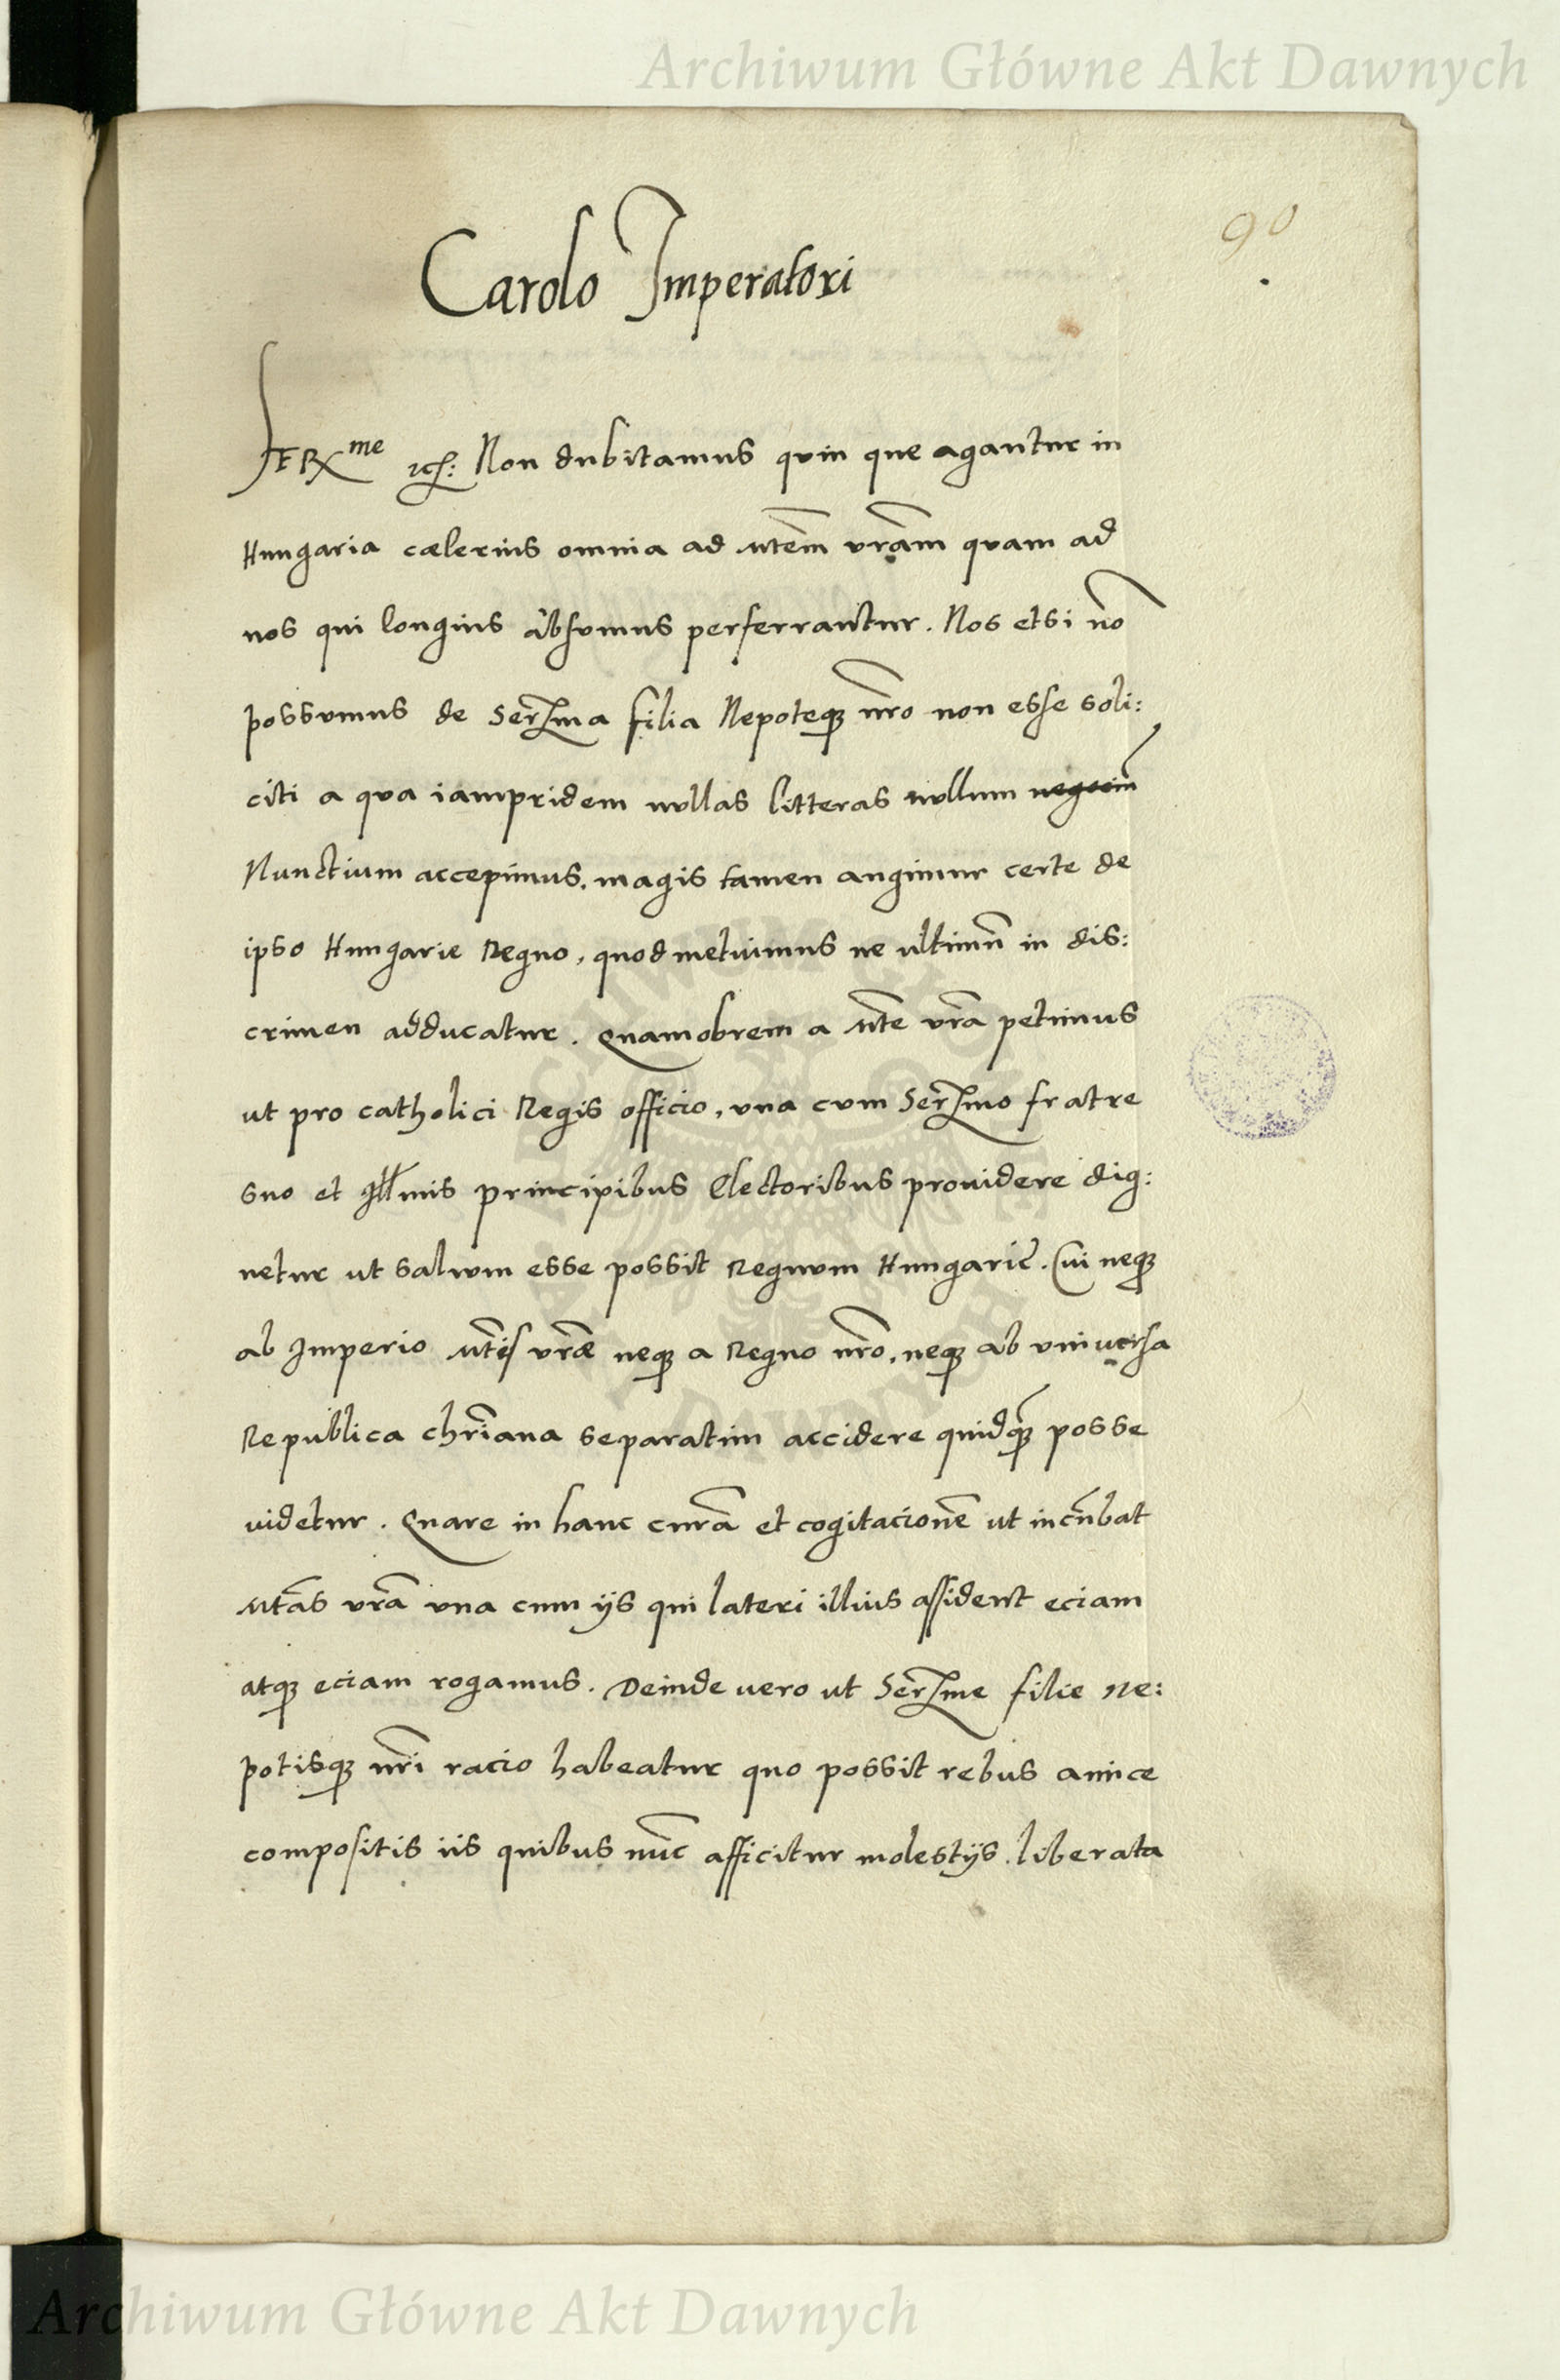 Archiwum Główne Akt Dawnych
90
Carolo Imperatori
SER^me etc: Non dubitamus quin que agantur in
Hungaria cælerius omnia ad Mtem vram quam ad
nos qui longius absumus perferrantur. Nos etsi no
possumus de Serma filia Nepoteq nro non esse soli:
citi a qua iampridem nullas litteras nullum negocium
Nunctium accepimus, magis tamen angimur certe de
ipso Hungarie Regno, quod metuimus ne ultimu in dis:
crimen adducatur. Quamobrem a Mte vra petimus
ut pro catholici Regis officio, una cum Sermo fratre
suo et Illmis principibus Electoribus prouidere dig:
netur ut salvum esse possit Regnum Hungarie. Cui neq
ab Imperio Mtis vræ neq a Regno nro, neq ab universa
Republica chriana separatim accidere quidq posse
videtur. Quare in hanc cura et cogitacione ut incubat
Mtas vra una cum ijs qui lateri illius assident eciam
atq eciam rogamus. Deinde vero ut Serme filie ne:
potisq nri racio habeatur quo possit rebus amice
compositis iis quibus nuc afficitur molestijs liberata
Archiwum Główne Akt Dawnych